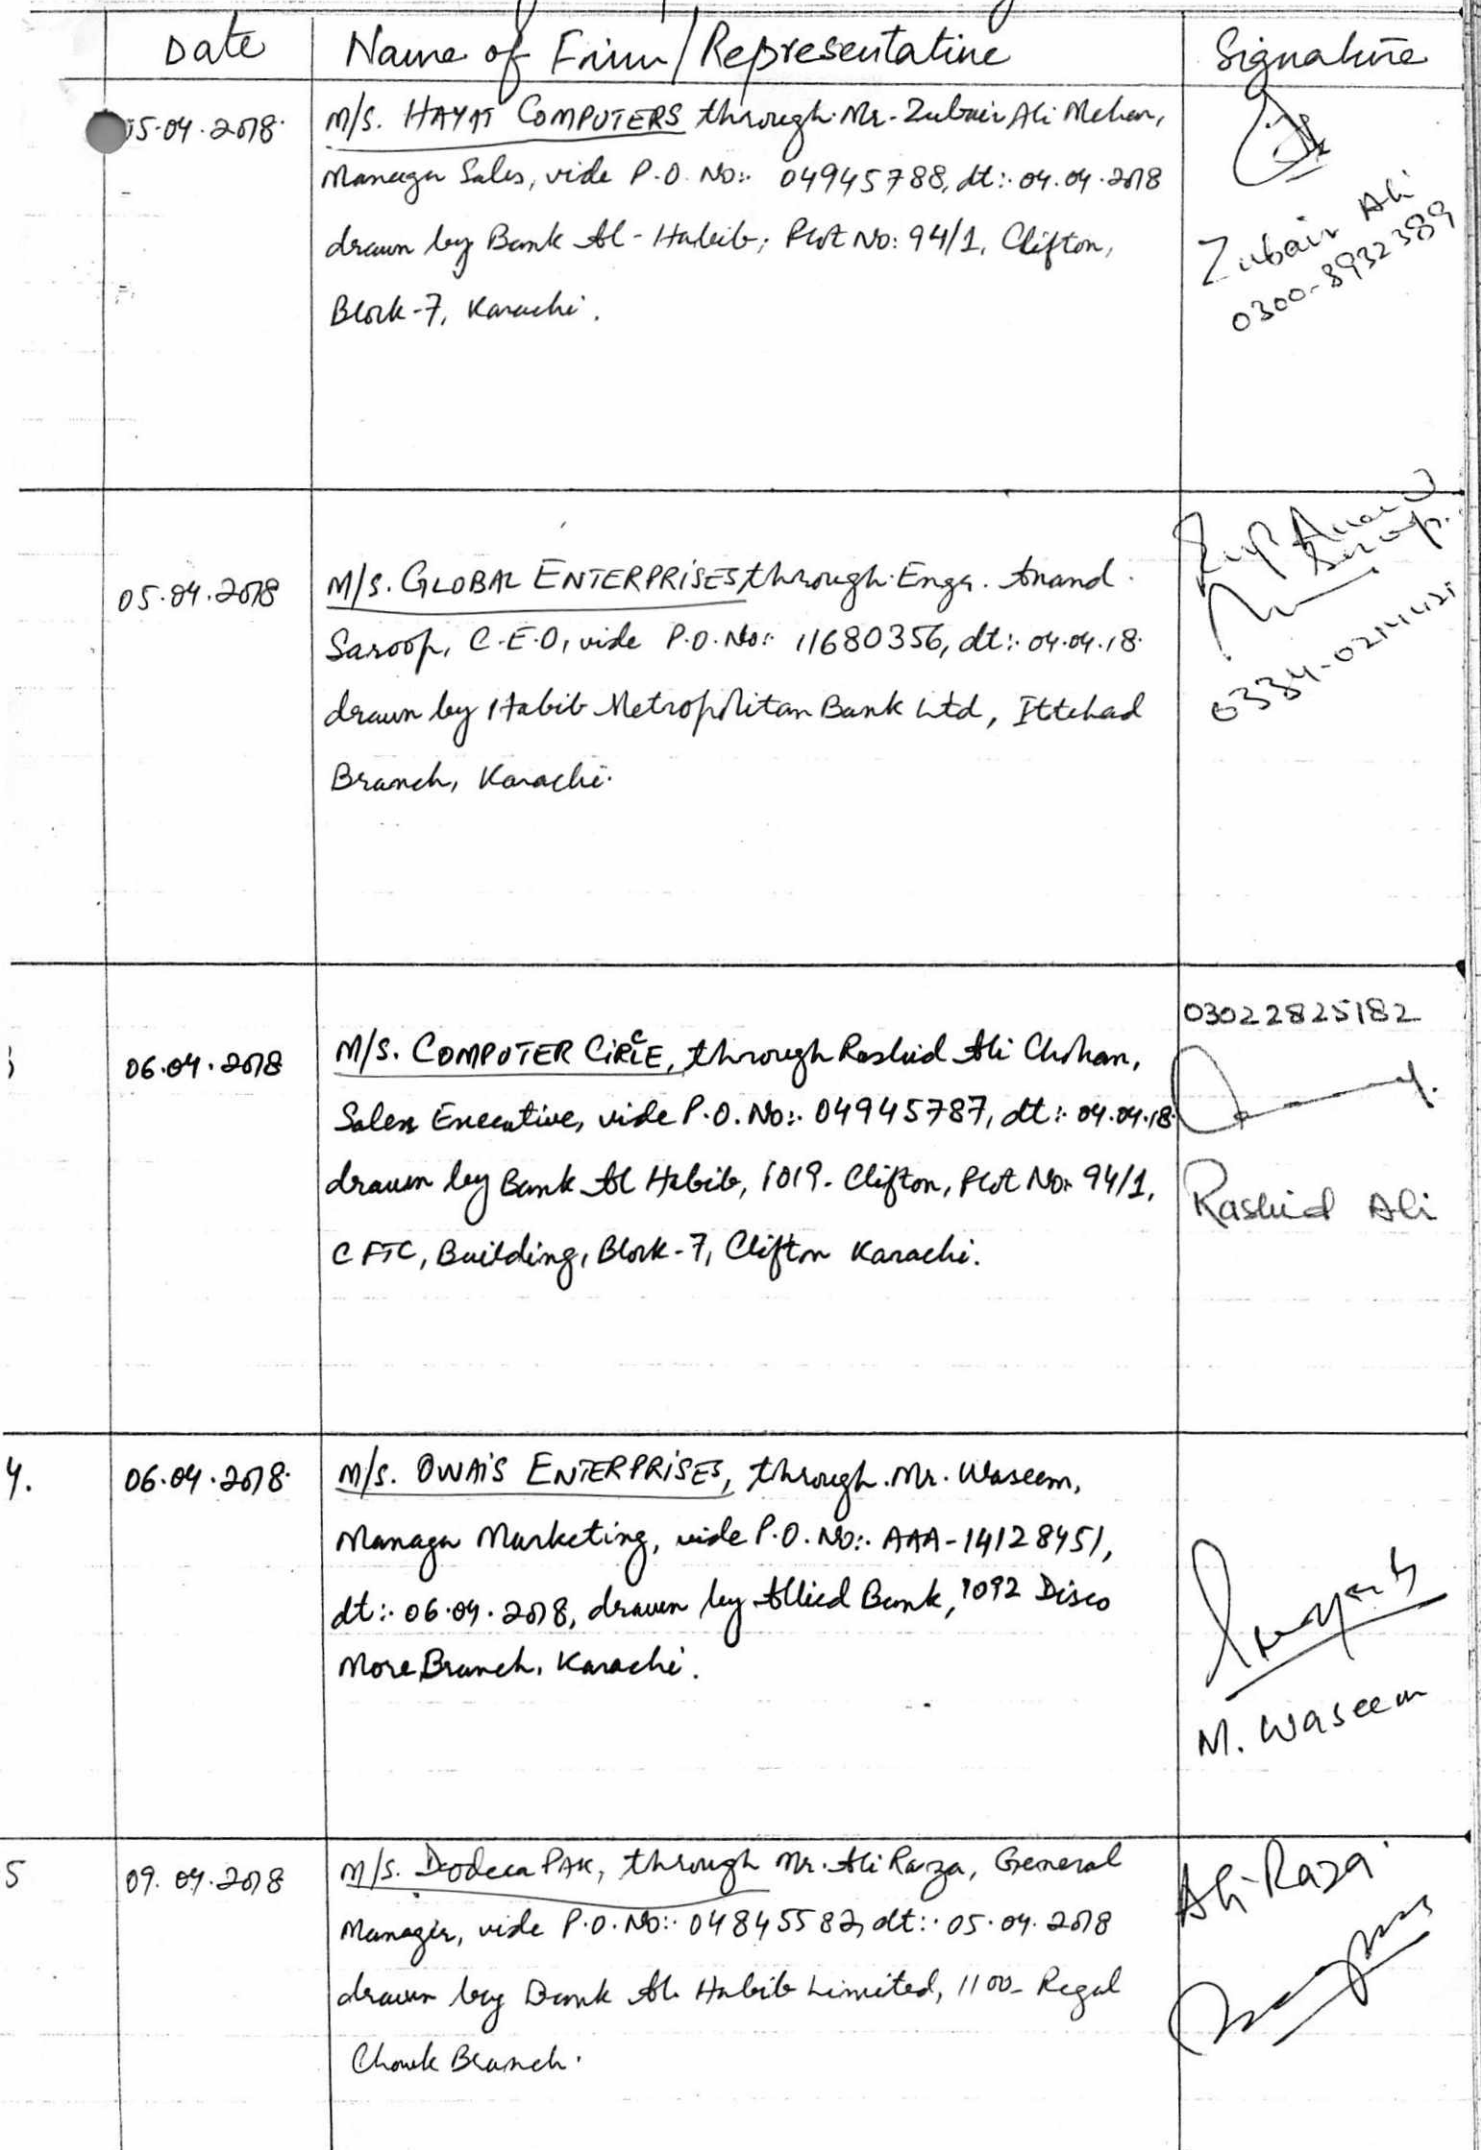 Date Name of Firm/Representative Signature
05.04.2018. M/S. HAYAT COMPUTERS through Mr. Zubair Ali Mehar,
Manager Sales, vide P.O. No:. 04945788, dt:. 04.04.2018
drawn by Bank Al-Habib, Plot No: 94/1, Clifton,
Block-7, Karachi.
Zubair Ali
0300-8932389
05.04.2018 M/S. GLOBAL ENTERPRISES through Engr. Anand
Saroop, C.E.O, vide P.O. No:. 11680356, dt:. 04.04.18.
drawn by Habib Metropolitan Bank Ltd, Ittehad
Branch, Karachi.
Engr Anand
Saroop.
06.04.2018 M/S. COMPUTER CIRCLE, through Rashid Ali Chohan,
Sales Executive, vide P.O. No:. 04945787, dt:. 04.04.18.
drawn by Bank Al Habib, 1019- Clifton, Plot No: 94/1,
CFTC, Building, Block-7, Clifton Karachi.
03022825182
Rashid Ali
4. 06.04.2018. M/S. OWAIS ENTERPRISES, through Mr. Waseem,
Manager Marketing, vide P.O. No:. AAA-14128451,
dt:. 06.04.2018, drawn by Allied Bank, 1092 Disco
More Branch, Karachi.
M. Waseem
5 09.04.2018 M/S. Dodeca PAK, through Mr. Ali Raza, General
Manager, vide P.O. No:. 04845582, dt:. 05.04.2018
drawn by Bank Al Habib Limited, 1100- Regal
Chowk Branch.
Ali Raza